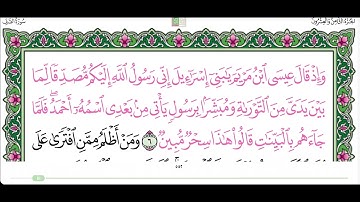 سورة الصف الجزء الثامن والعشرون
وَإِذْ قَالَ عِيسَى ابْنُ مَرْيَمَ يَٰبَنِىٓ إِسْرَٰٓءِيلَ إِنِّى رَسُولُ ٱللَّهِ إِلَيْكُم مُّصَدِّقًا لِّمَا
بَيْنَ يَدَىَّ مِنَ ٱلتَّوْرَىٰةِ وَمُبَشِّرًۢا بِرَسُولٍ يَأْتِى مِنۢ بَعْدِى ٱسْمُهُۥٓ أَحْمَدُ ۖ فَلَمَّا
جَآءَهُم بِٱلْبَيِّنَٰتِ قَالُوا۟ هَٰذَا سِحْرٌ مُّبِينٌ ٦ وَمَنْ أَظْلَمُ مِمَّنِ ٱفْتَرَىٰ عَلَى
٥٥٢